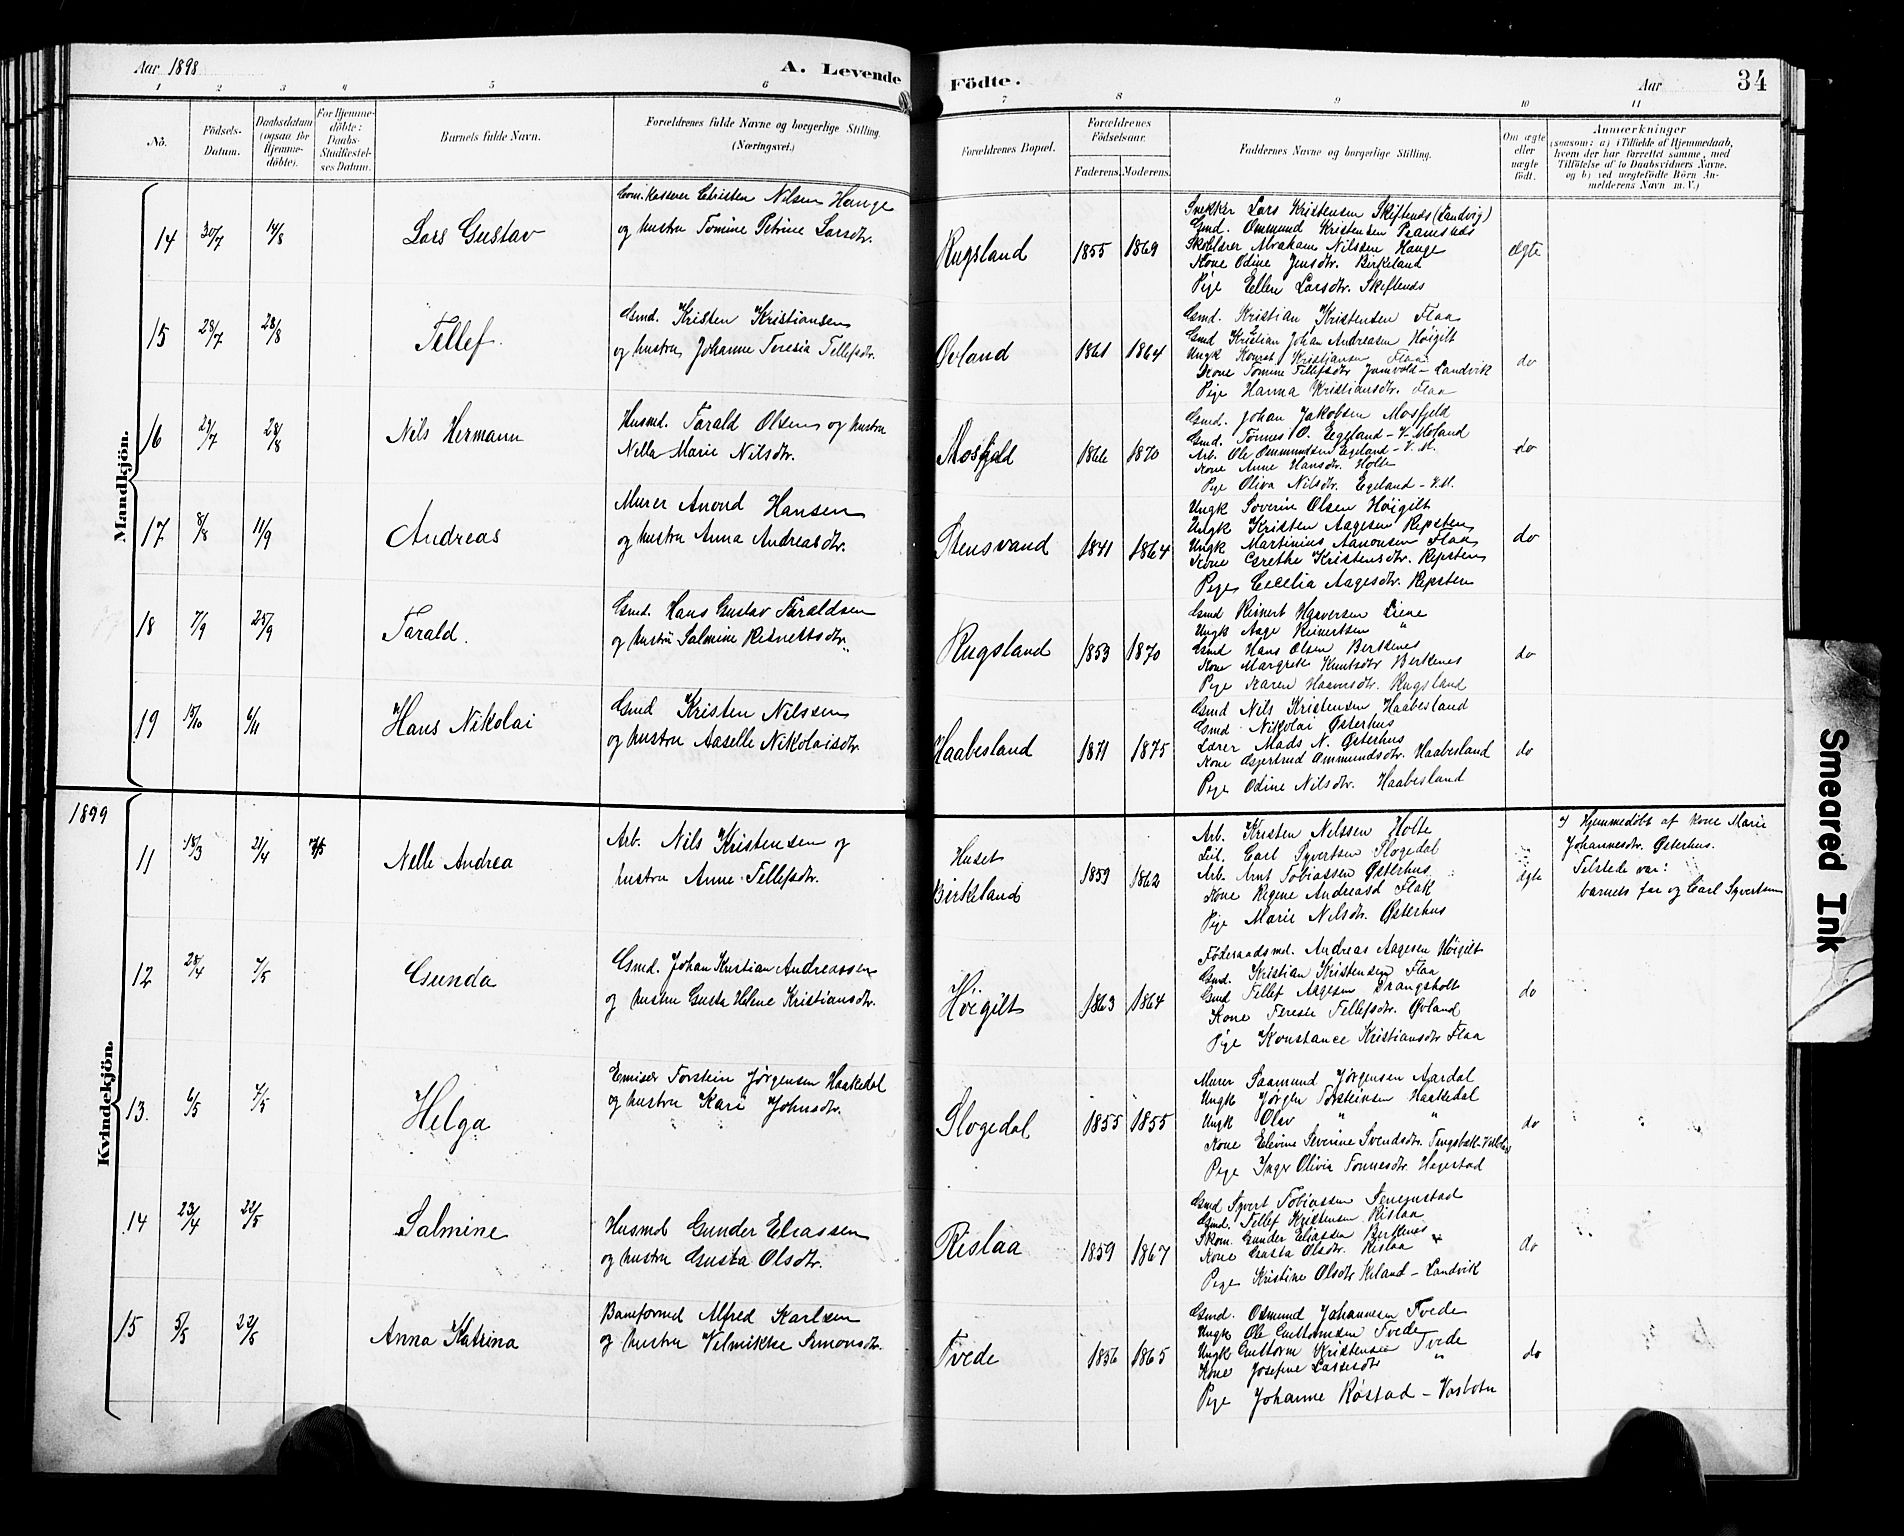 Aar 1898
A. Levende
Födte.
Aar
34
1 2 3 4 5 6 7 8 9 10 11
No.
Födsels-
Datum.
Daabsdatum
(ogsaa for
Hjemme-
döbte).
For Hjemme-
döbte:
Daabs-
Stadfæstel-
ses Datum.
Barnets fulde Navn.
Forældrenes fulde Navne og borgerlige Stilling.
(Næringsvei.)
Forældrenes Bopæl.
Forældrenes
Födselsaar.
Faderens. Moderens.
Faddernes Navne og borgerlige Stilling.
Om ægte
eller
uægte
födt.
Anmærkninger
(saasom: a) i Tilfælde af Hjemmedaab,
hvem der har forrettet samme, med
Tilföielse af to Daabsvidners Navne.
og b) ved uægtefödte Börn An-
melderens Navn m. V.)
Mandkjön.
14 30/7 14/8 Lars Gustav
Com.kasserer Christen Nilsen Hauge
og hustru Tomine Petrine Larsdtr.
Rugsland 1855 1869
Snekker Lars Kristensen Skiftenes (Landvig)
Gmd. Ommund Kristensen
Skolelærer Abraham Nilssen Hauge
Kone Odine Jensdtr. Birkeland
Pige Ellen Larsdtr. Skiftenes
ægte
15 28/7 28/8 Tellef.
Gmd. Kristen Kristiansen
og hustru Johanne Teresia Tellefsdtr.
Øvland 1861 1864
Gmd. Kristian Kristensen Flaa
Gmd Kristian Johan Andreasen Høigilt
Ungk Konrat Kristiansen Flaa
Kone Tomine Tellefsdtr. - Landvik
Pige Hanna Kristiansdtr. Flaa
do
16 29/7 28/8 Nils Hermann
Husmd. Tarald Olsen og hustru
Nella Marie Nilsdtr.
Mosfjeld 1866 1870
Gmd. Johan Jakobsen Mosfjeld
Gmd. Tönnes O. Egeland - V. Moland
Arb. Ole Ommundsen Egeland - V. M.
Kone Anne Hansdtr. Holte
Pige Oliva Nilsdtr. Egeland - V.M.
do
17 8/8 11/9 Andreas
Murer Anond Hansen
og hustru Anna Andreasdtr.
Stensvand 1841 1864
Ungk Soverin Olsen Höigilt
Ungk Kristen Aagesen Repsten
Ungk Martinius Aanonsen Flaa
Kone Grethe Kristensdtr. Repsten
Pige Cecelia Aagesdtr. Repsten
do
18 7/9 25/9 Tarald.
Gmd. Hans Gustav Taraldsen
og hustru Salmine Reinertsdtr.
Rugsland 1853 1870
Gmd Reinert Haaversen Liene
Ungk Aage Reinertsen "
Gmd Hans Olsen Berkenes
Kone Margrete Knutsdtr Berkenes
Pige Karen Rugsland
do
19 15/10 6/11 Hans Nikolai
Gmd Kristen Nilssen
og hustru Aaselle Nikolaisdtr.
Haabesland 1871 1875
Gmd Nils Kristensen Haabesland
Gmd Nikolai Østerhus
Lærer Mads N. Østerhus
Kone Gjertrud Ommundsdtr. Haabesland
Pige Odine Nilsdtr. Haabesland
do
1899
Kvindekjön.
11 18/3 21/4 7/5 Nelle Andrea
Arb. Nils Kristensen og
hustru Anne Tellefsdtr.
Huset
Birkeland
1859 1862
Arb. Kristen Nelssen Holte
Leil. Carl Syvertsen Flogedal
Arb. Arnt Tobiassen Østerhus
Kone Regine Andreasd Flak
Pige Marie Nilsdtr. Østerhus
ægte
Hjemmedöbt af kone Marie
Johannesdtr. Østerhus.
Tilstede var:
barnets far og Carl Syvertsen
12 28/4 7/5 Gunda
Gmd. Johan Kristian Andreassen
og hustru Gusta Helene Kristiansdtr.
Höigilt 1863 1864
Föderaadsmd. Andreas Aagesen Höigilt
Gmd. Kristian Kristensen Flaa
Gmd Tellef Aagesen Drangsholt
Kone Tereste Tellefsdtr. Øvland
Pige Konstance Kristiansdtr Flaa
do
13. 6/5 Helga
Emisær Torstein Jørgensen Haakedal
og hustru Kari Johnsdtr.
Slogedal 1855 1855
Murer Saamund Jørgensen Aardal
Ungk Jørgen Torsteinsen Haakedal
Ungk Olav " "
Kone Elevine Severine Svendsdtr.
Pige Inger Olivia Tonnesdtr. Hegestad
do
14 23/4 22/5 Salmine
Husmd Gunder Eliassen
og hustru Gusta Olsdtr.
Rislaa 1859 1867
Gmd Syvert Tobiassen
Gmd. Tellef Kristensen Rislaa
Skom. Gunder Eliassen Berkenes
Kone Gusta Olsdtr. Rislaa
Pige Kristine Olsdtr - Landvik
do
15 5/5 22/5 Anna Katrina
Baneformd Alfred Karlsen
og hustru Simonsdtr.
Tvede 1856 1865
Gmd. Osmund Johannesen Tvede
Ungk Ole Guttormsen Tvede
Ungk Guttorm Kristensen Tvede
Kone Josefine Larsesdtr "
Pige Johanne Røstad - Vasbotn
do
Smeared Ink